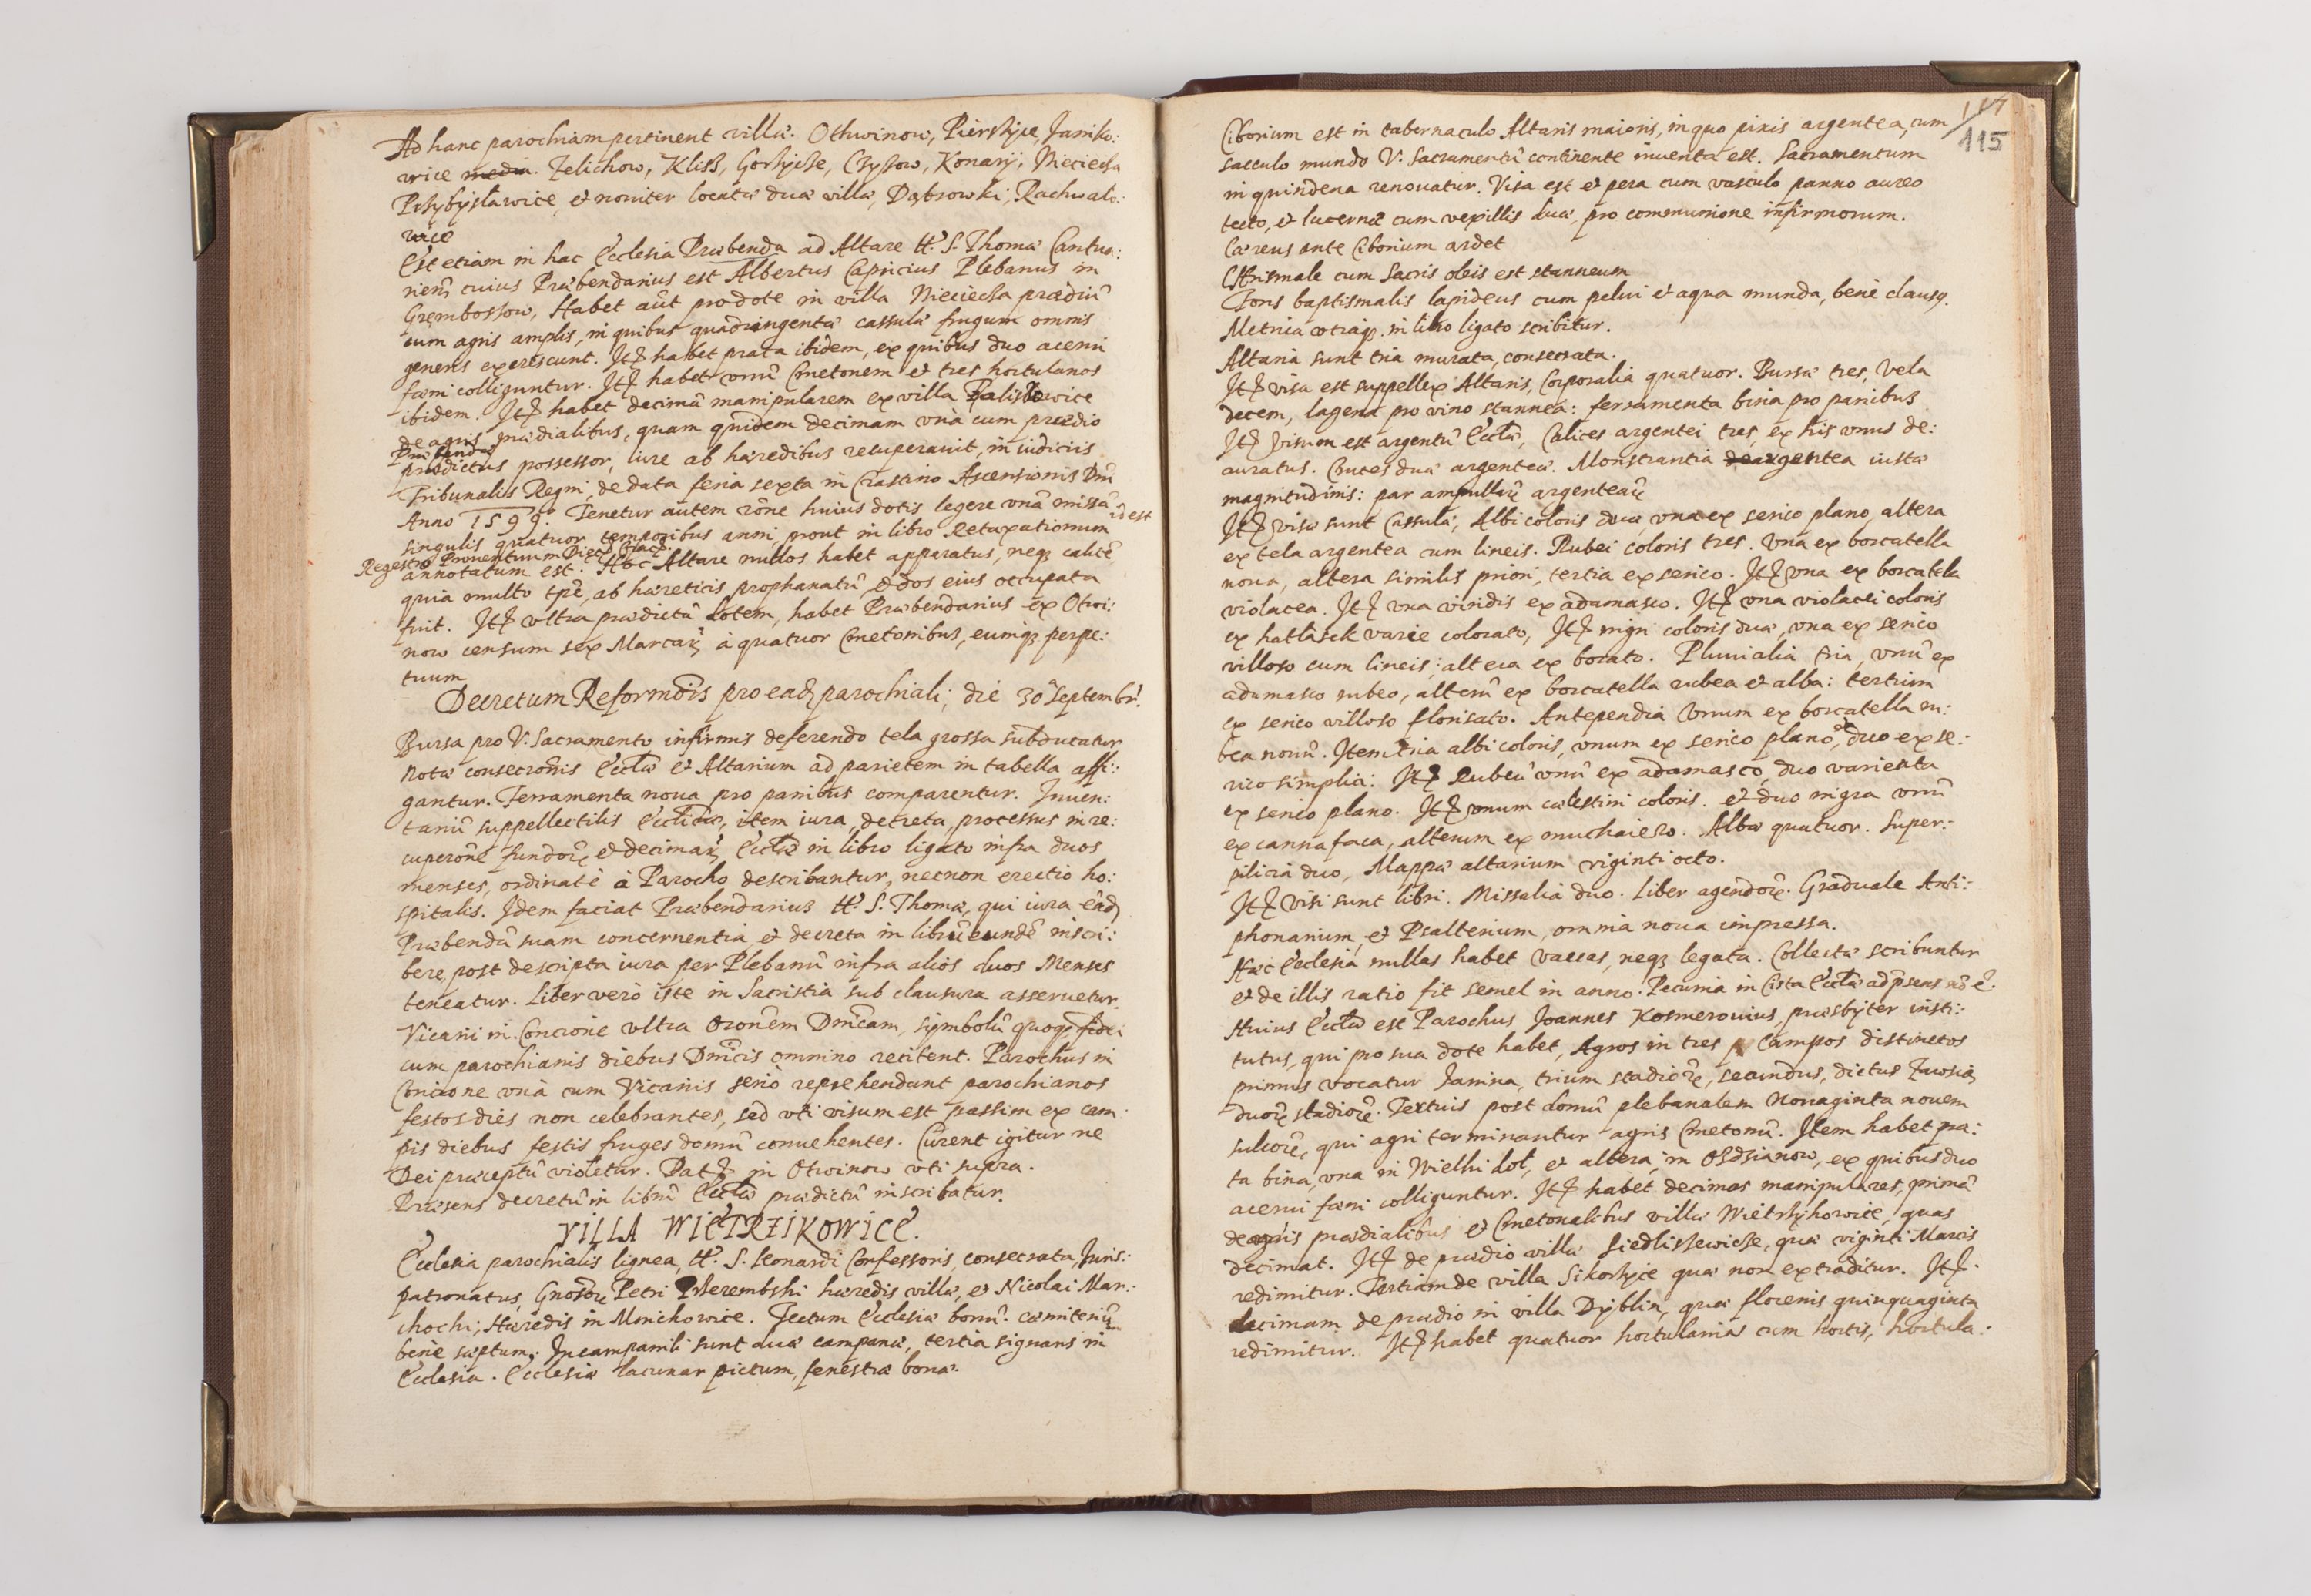 Ad hanc parochiam pertinent villæ. Othwinow, Pierszyce, Janiko:
wice media. Zelichow, Kliss, Gorzycze, Czyzow, Konary, Nieciecza
Przybysławice, et noviter locatæ duæ villæ, Dąbrowki, Rachwalo:
wice
Est etiam in hac Ecclesia Præbenda ad Altare tt. S. Thomæ Cantua:
rien̄ cuius Præbendarius est Albertus Capricius Plebanus in
Grembossow, Habet aūt pro dote in villa Nieciecza prædiū
cum agris amplis, in quibus quadringentæ cassulæ frugum omnis
generis excrescunt. Itē habet prata ibidem, ex quibus duo acervi
fæni colliguntur. Itē habet vnū Cmetonem et tres hortulanos
ibidem. Itē habet decimā manipularem ex villa Kalissowice
de agris prædialibus, quam quidem decimam vnà cum prædio
Præbendæ
prædictus possessor, iure ab hæredibus recuperauit, in iudiciis
Tribunalis Regni, de data feria sexta in Crastino Ascensionis Dn̄i
Anno 1599. Tenetur autem rōne huius dotis legere vnā missā id est
singulis quatuor temporibus anni, prout in libro Retaxationum
Regestro Prouentuum Diæcs Crac.
annotatum est. Hoc Altare nullos habet apparatus, neq3 calicē
quia multo tp̄e, ab hæreticis prophanatū, et dos eius occupata
fuit. Itē vltra prædictā dotem, habet Præbendarius ex Otwi:
now censum sex Marcar̄ à quatuor Cmetonibus, eumq3 perpe:
tuum
Decretum Reformōis pro ead̄ parochiali; die 30ª Septembr̄.
Bursa pro V. Sacramento infirmis deferendo tela grossa subducatur
Nota consecrōnis Eccłæ et Altarium ad parietem in tabella affi:
gantur. Ferramenta noua pro panibus comparentur. Inuen:
tariū suppellectilis Eccłicæ, item iura, decreta, processus in re:
cuperōne fundor̄ et decimar̄ Eccłæ in libro ligato infra duos
menses, ordinatè à Parocho describantur, necnon erectio ho:
spitalis. Idem faciat Præbendarius tt. S. Thomæ, qui iura ead̄
Præbendā suam concernentia et decreta in librū eundē inscri:
bere, post descripta iura per Plebanū infra alios duos Menses
teneatur. Liber verò iste in Sacristia sub clausura asseruetur.
Vicarii in Concione vltra Orōnem Dn̄icam, symbolū quoq3 fidei
cum parochianis diebus Dn̄icis omnino recitent. Parochus in
Concione vnà cum Vicariis seriò reprehendant parochianos
festos dies non celebrantes, sed vti visum est passim ex cam:
pis diebus festis fruges domū conuehentes. Curent igitur ne
Dei præceptū violetur. Datē in Otwinow vti supra.
Præsens decretū in librū Eccłæ prædictū inscribatur.
VILLA WIETRZIKOWICE.
Ecclesia parochialis lignea, tt. S. Leonardi Confessoris, consecrata, Iuris:
patronatus, Gnosor̄ Petri Przerembski hæredis villæ, et Nicolai Mar:
chocki, Hæredis in Mnichowice. Tectum Ecclesiæ bonū. cæmiteriū
benè sæptum. In campanili sunt duæ campanæ, tertia signans in
Ecclesia. Ecclesiæ lacunar pictum, fenestræ bonæ.
117
115
Ciborium est in tabernaculo Altaris maioris, in quo pixis argentea, cum
sacculo mundo V. Sacramentū continente inuenta est. Sacramentum
in quindena renouatur. Visa est et pera cum vasculo panno aureo
tecto, et lucernæ cum vexillis duæ, pro communione infirmorum.
Cæreus ante Ciborium ardet
Chrismale cum Sacris oleis est stanneum
Fons baptismalis lapideus cum pelui et aqua munda, benè clausꝰ.
Metrica vtraq3 in libro ligato scribitur.
Altaria sunt tria murata, consecrata.
Itē visa est suppellex Altaris, Corporalia quatuor. Bursæ tres, Vela
decem, lagena pro vino stannea: ferramenta bina pro panibus
Itē visum est argentū Eccłæ, Calices argentei tres, ex his vnus de:
auratus. Cruces duæ argenteæ. Monstrantia deargentea iustæ
magnitudinis: par ampullar̄ argentear̄
Itē visæ sunt Cassulæ, Albi coloris duæ, vna ex serico plano, altera
ex tela argentea cum lineis. Rubei coloris tres. Vna ex borcatella
noua, altera similis priori, tertia ex serico. Itē vna ex borcatela
violacea. Itē vna viridis ex adamasco. Itē vna violacei coloris
ex hatłasek varie colorato, Itē nigri coloris duæ, vna ex serico
villoso cum lineis; altera ex borato. Pluuialia tria, vnū ex
adamasco rubeo, alterū ex borcatella rubea et alba: tertium
ex serico villoso florisato. Antependia Vnum ex borcatella ru:
bea nouū. Item tria albi coloris, vnum ex serico plano, et duo ex se:
rico simplici: Itē Rubeū vnū ex adamasco, duo varienta
ex serico plano. Itē vnum cælestini coloris. et duo nigra vnū
ex cannafaca, alterum ex muchaiero. Albæ quatuor. Super:
pilicia duo, Mappæ altarium viginti octo.
Itē visi sunt libri. Missalia duo. Liber agendor̄. Graduale Anti:
phonarium, et Psalterium, omnia noua impressa.
Hæc Ecclesia nullas habet vaccas, neq3 legata. Collectæ scribuntur
et de illis ratio fit semel in anno. Pecunia in Cista Eccłæ ad p̄sens nō ē.
Huius Eccłæ est Parochus Joannes Kosmerouius, præsbyter insti:
tutus, qui pro sua dote habet, Agros in tres Campos distinctos
primus vocatur Janina, trium stadior̄, secundus, dictus
duor̄ stadior̄. Tertius post domū plebanalem Nonaginta nouem
sulcor̄, qui agri terminantur agris Cmetonū. Item habet pra:
ta bina, vna in Wielki doł, et altera in , ex quibus duo
acerui fæni colliguntur. Itē habet decimas manipulares, primā
de agris prædialibus et Cmetonalibus villæ Wietrzykowice, quas
decimat. Itē de prædio villæ Siedlissewicze, quæ viginti Marcis
redimitur. Tertiam de villa Sikorzyce quæ non extraditur. Itē
decimam de prædio in villa Dyblin, quæ florenis quinquaginta
redimitur. Itē habet quatuor hortulanias cum hortis, hortula: